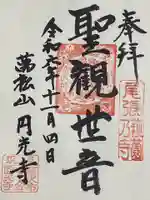 奉拝
聖観世音
令和六年十一月四日
萬松山 円光寺